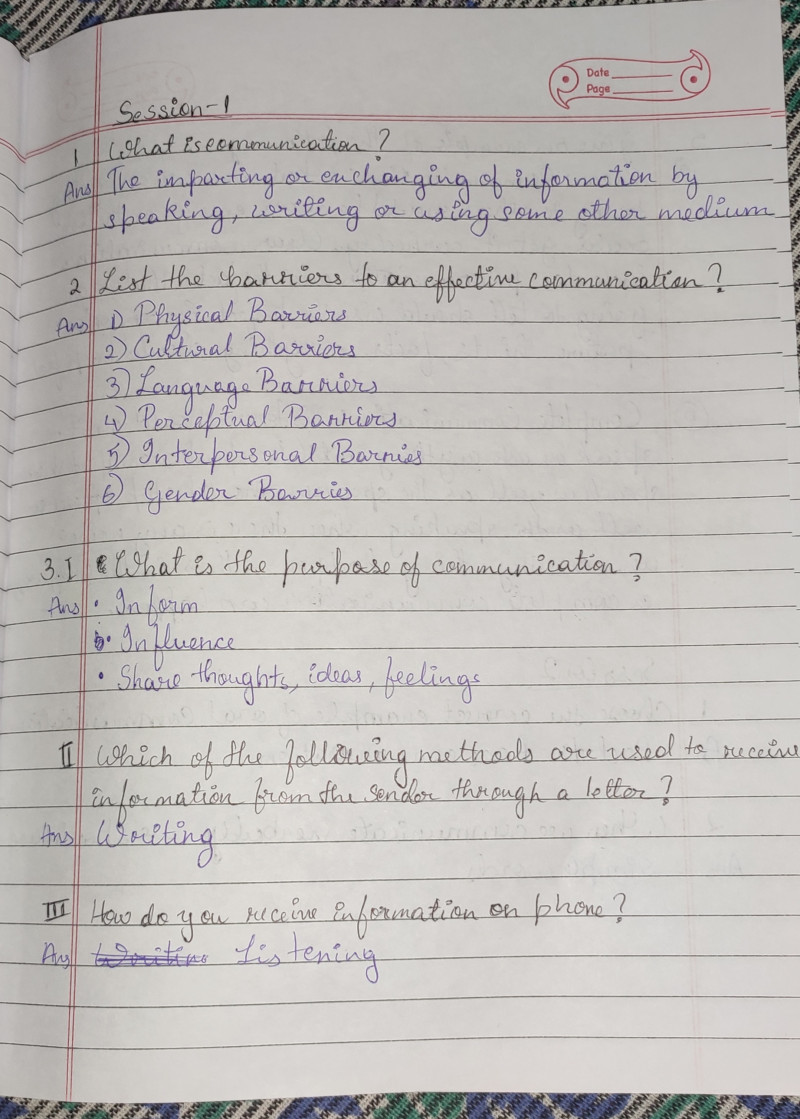 Date
Page
Session-1
1 What is communication?
Ans The imparting or enchanging of information by
speaking, writing or using some other medium
2 List the barriers to an effective communication?
Ans 1) Physical Barriers
2) Cultural Barriers
3) Language Barriers
4) Perceptual Barriers
5) Interpersonal Barries
6) Gender Barries
3.I What is the purpose of communication?
Ans • Inform
• Influence
• Share thoughts, ideas, feelings
II Which of the following methods are used to receive
information from the sender through a letter?
Ans Writing
III How do you receive information on phone?
Ans Listening